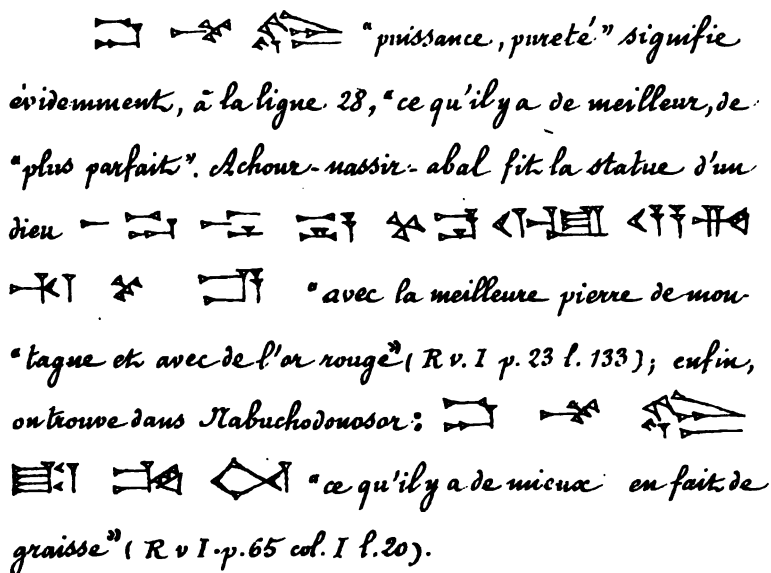 "puissance, pureté" signifie
évidemment, à la ligne 28, "ce qu'il y a de meilleur, de
"plus parfait". Achour-nassir-abal fit la statue d'un
dieu
"avec la meilleure pierre de mon-
"tagne et avec de l'or rouge" (R v. I p. 23 l. 133); enfin,
on trouve dans Nabuchodonosor:
"ce qu'il y a de mieux en fait de
graisse" (R v I. p. 65 col. I l. 20).